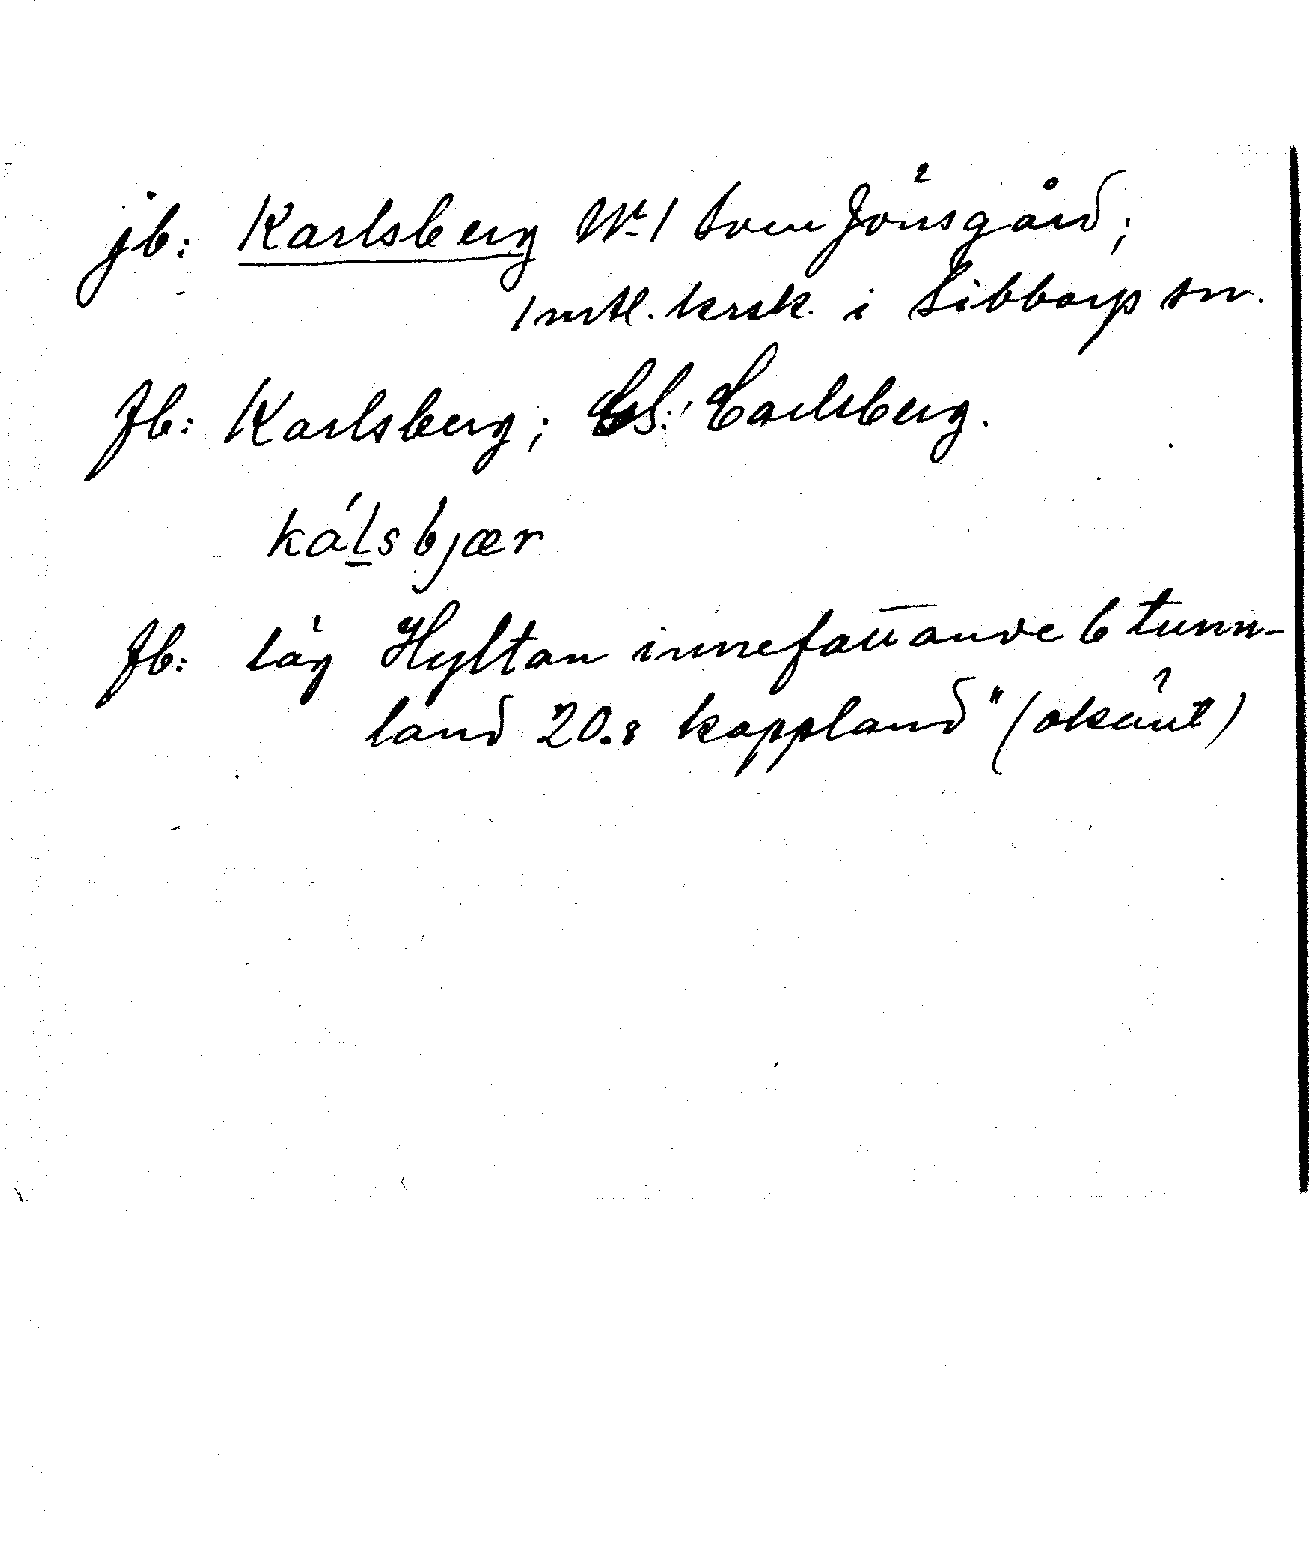 jb: Karlsberg Nr 1 Sven Jönsgård;
1 mtl. krsk. i Sibbarp sn.
Jb: Karlsberg; Carlsberg.
kálsbjær
Jb: läg Hyltan innefattande 6 tunn-
land 20.8 kappland" (okänt)